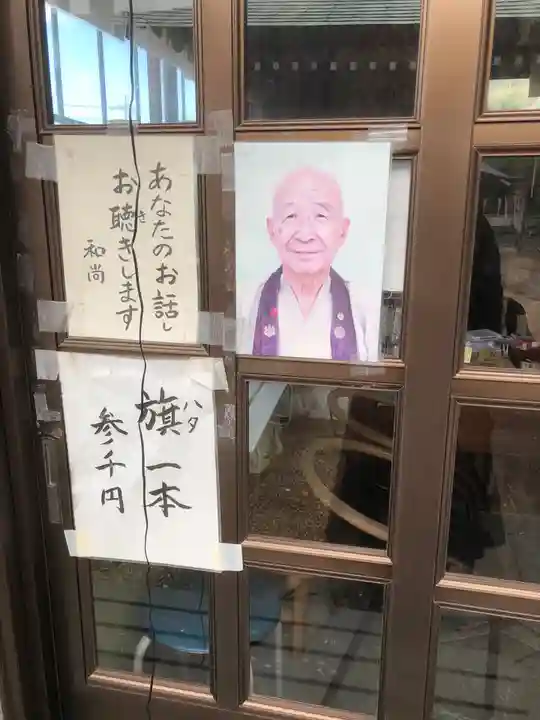 あなたのお話し
お聴きします
和尚
旗一本
ハタ
参千円